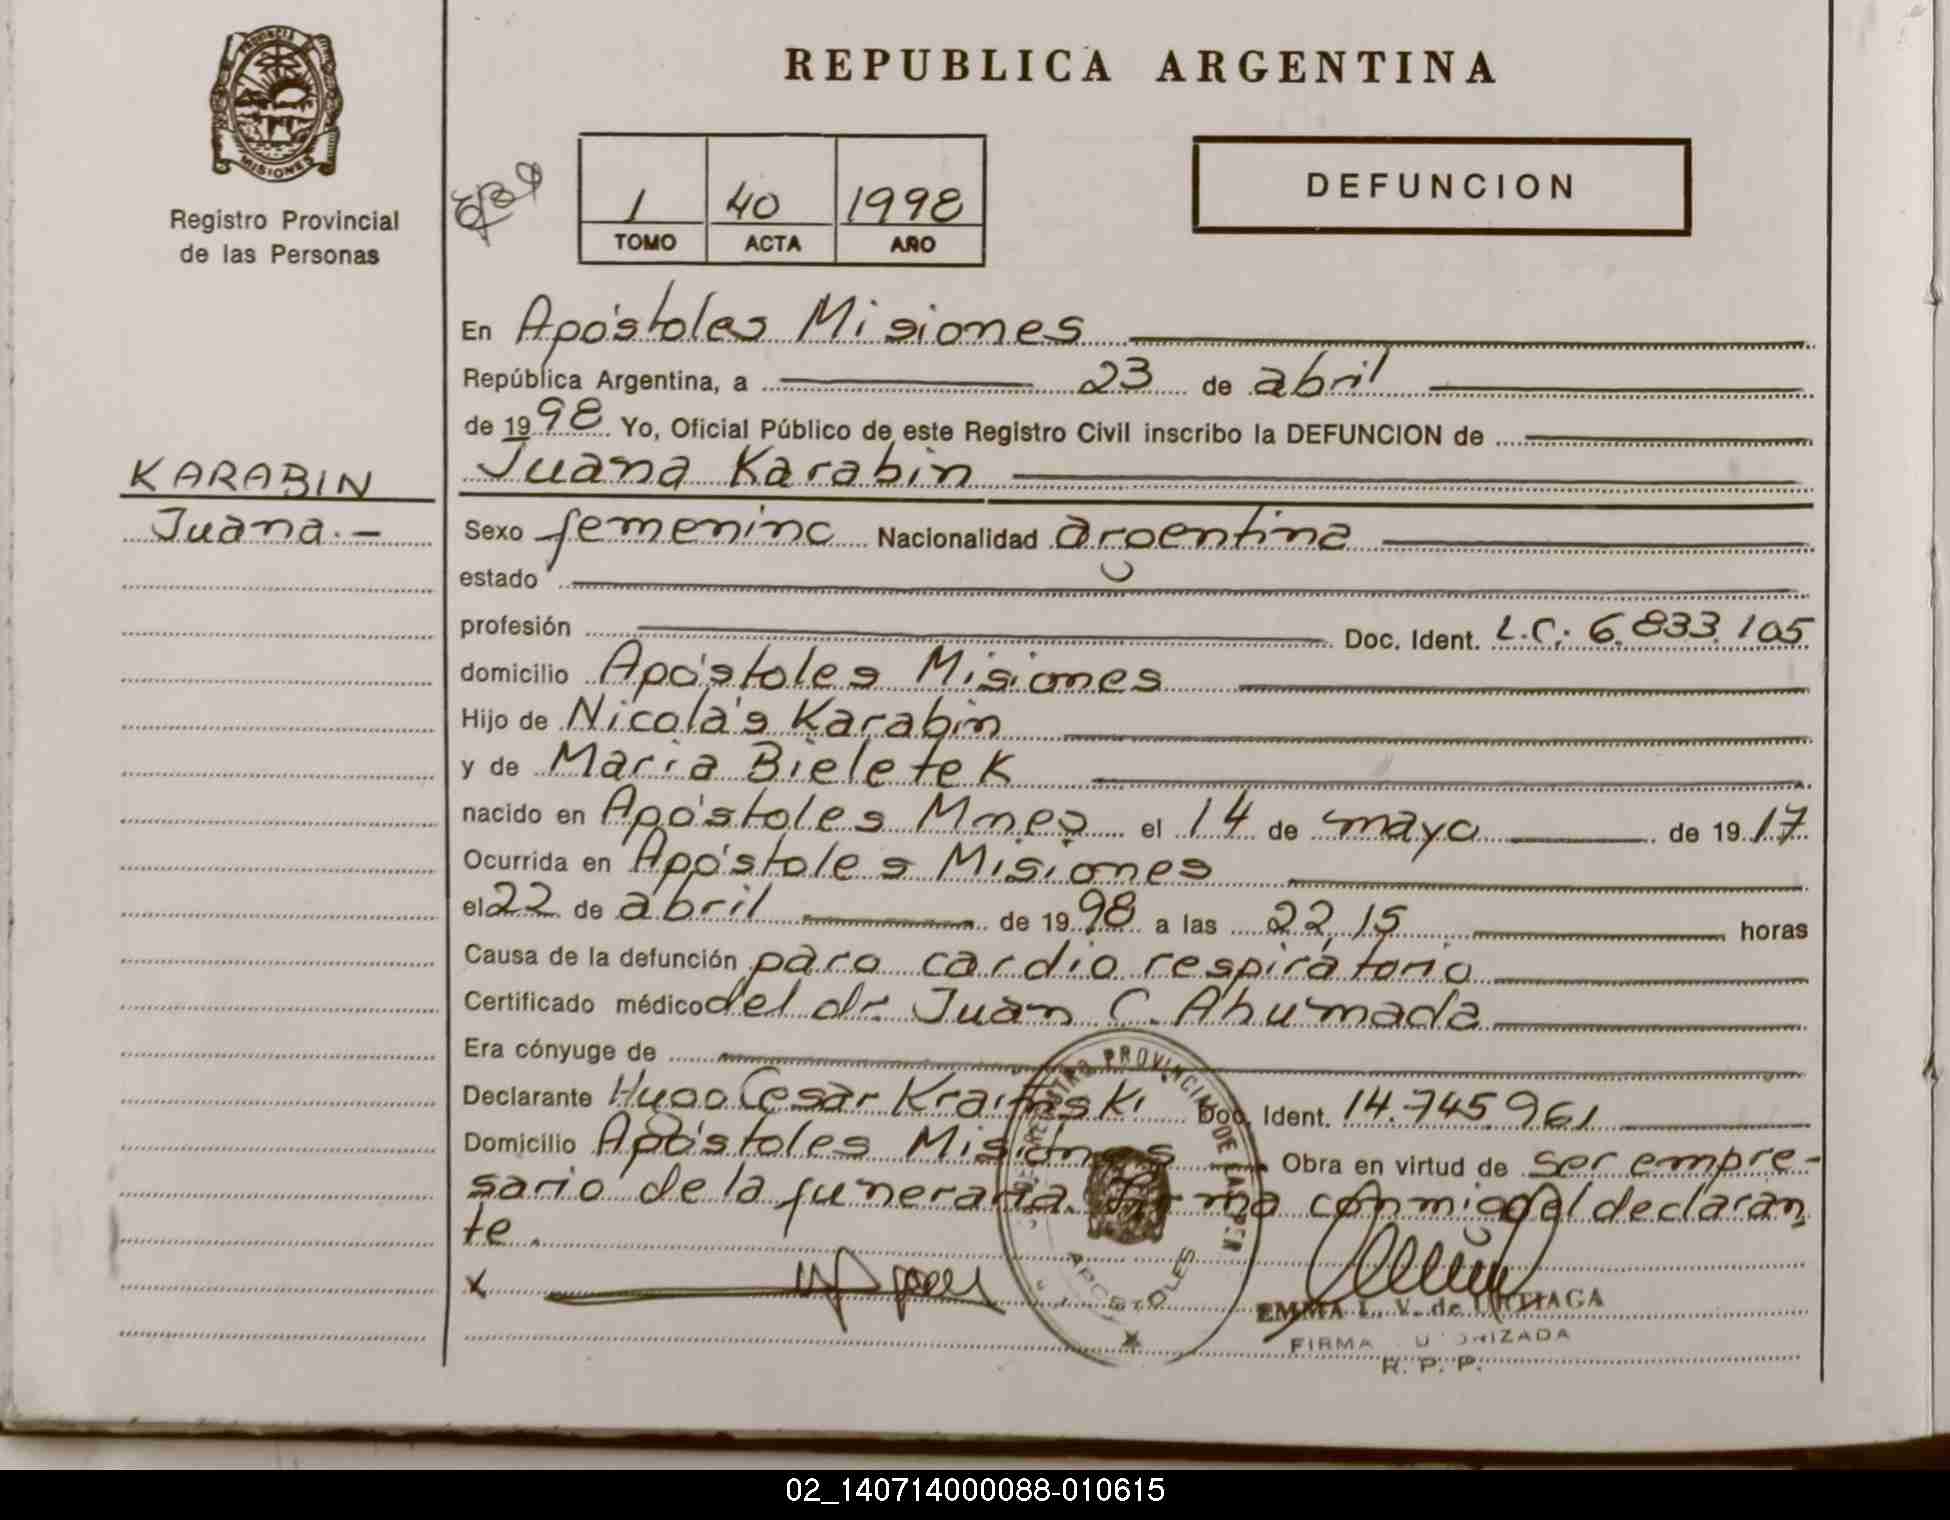 PROVINCIA DE
MISIONES
Registro Provincial
de las Personas
REPUBLICA ARGENTINA
1 40 1998
TOMO ACTA AÑO
DEFUNCION
KARABIN
Juana.-
En Apóstoles Misiones
República Argentina, a 23 de abril
de 1998 Yo, Oficial Público de este Registro Civil inscribo la DEFUNCION de
Juana Karabin
Sexo femenino Nacionalidad argentina
estado
profesión Doc. Ident. L.C: 6.833.105
domicilio Apóstoles Misiones
Hijo de Nicolás Karabin
y de Maria Bieletek
nacido en Apóstoles Mnes el 14 de mayo de 1917
Ocurrida en Apóstoles Misiones
el 22 de abril de 1998 a las 22,15 horas
Causa de la defunción paro cardio respiratorio
Certificado médico del dr. Juan C. Ahumada
Era cónyuge de
Declarante Hugo Cesar Doc. Ident. 14.745961
Domicilio Apóstoles Misiones Obra en virtud de ser empre-
sario de la funeraria. Firma conmigo el declaran
te.
x
REGISTRO PROVINCIAL DE LAS PER
APOSTOLES
EMMA L. V. de URTIAGA
FIRMA AUTORIZADA
R. P. P.
02_140714000088-010615